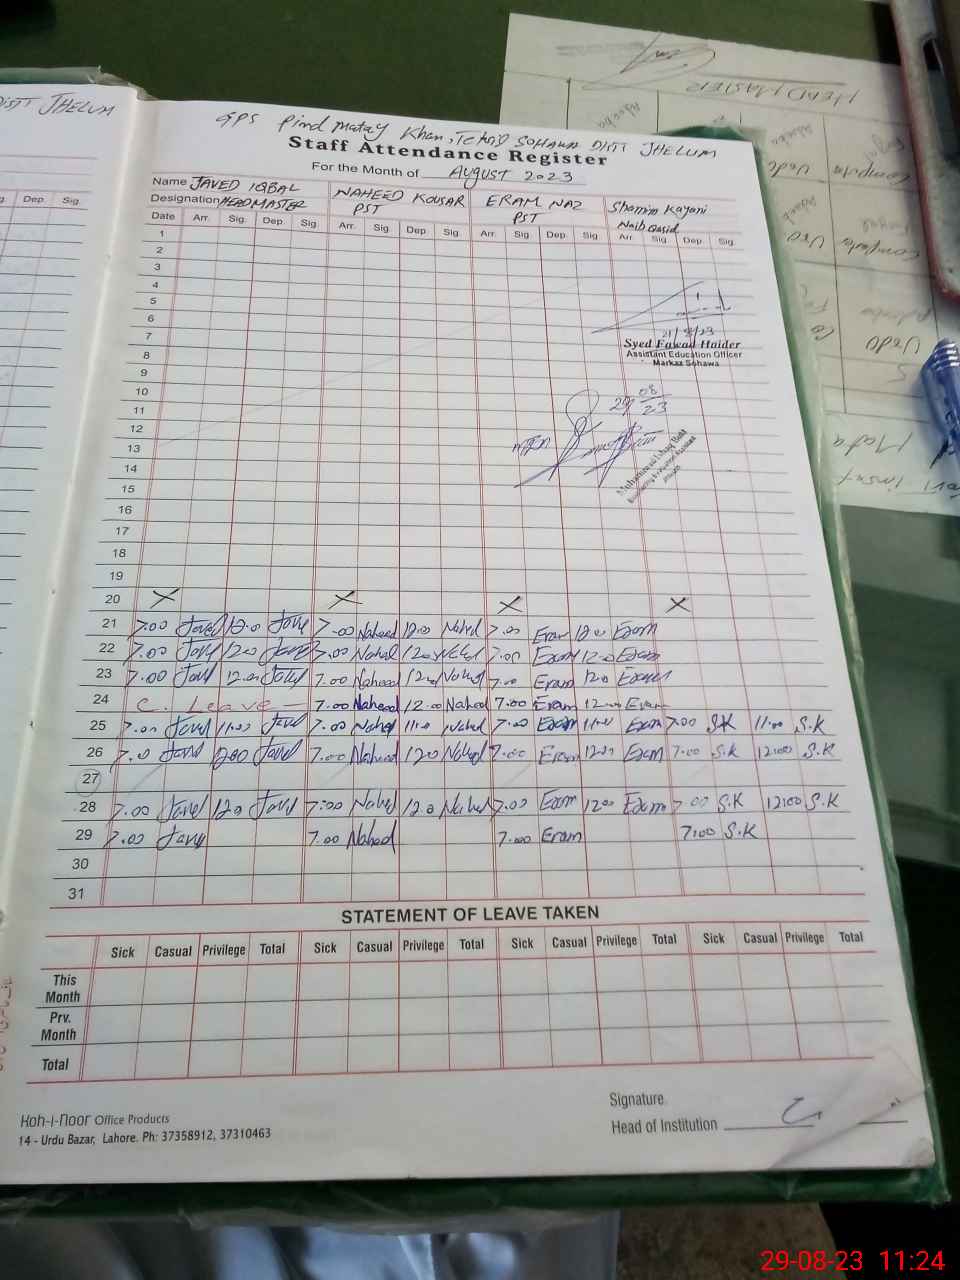 DISTT JHELUM
GPS Pind Matay Khan, Tehsil SOHAWA DISTT JHELUM
Staff Attendance Register
For the Month of AUGUST 2023
Name JAVED IQBAL NAHEED KOUSAR ERAM NAZ Shamim Kayani
Designation HEADMASTER PST PST Naib Qasid
Dep. Sig. Date Arr. Sig. Dep. Sig. Arr. Sig. Dep. Sig. Arr. Sig. Dep. Sig. Arr. Sig. Dep. Sig.
1
2
3
4
5
6
7 21/8/23
Syed Fawad Haider
8 Assistant Education Officer
Markaz Sohawa
9
10
11 29/08/23
12
13
14
15
16
17
18
19
20 X X X X
21 7.00 Javed 12.0 Javed 7.00 Naheed 12.0 Nahed 7.00 Eram 12.0 Eram
22 7.00 Javed 12.0 Javed 7.00 Nahed 12.0 Nahed 7.00 Eram 12.0 Eram
23 7.00 Javed 12.00 Javed 7.00 Naheed 12.0 Nahed 7.00 Eram 12.0 Eram
24 C. Leave — 7.00 Naheed 12.00 Nahed 7.00 Eram 12.00 Eram
25 7.00 Javed 11.00 Javed 7.00 Nahed 11.0 Nahed 7.00 Eram 11.00 Eram 7.00 S.K 11.00 S.K
26 7.0 Javed 12.00 Javed 7.00 Naheed 12.0 Nahed 7.00 Eram 12.00 Eram 7.00 S.K 12.00 S.K
27
28 7.00 Javed 12.0 Javed 7:00 Nahed 12.0 Nahed 7.00 Eram 12.00 Eram 7.00 S.K 12:00 S.K
29 7.00 Javed 7.00 Nahed 7.00 Eram 7.00 S.K
30
31
STATEMENT OF LEAVE TAKEN
Sick Casual Privilege Total Sick Casual Privilege Total Sick Casual Privilege Total Sick Casual Privilege Total
This Month
Prv. Month
Total
Signature
Head of Institution
Koh-i-Noor Office Products
14 - Urdu Bazar, Lahore. Ph: 37358912, 37310463
HEADMASTER
29-08-23 11:24